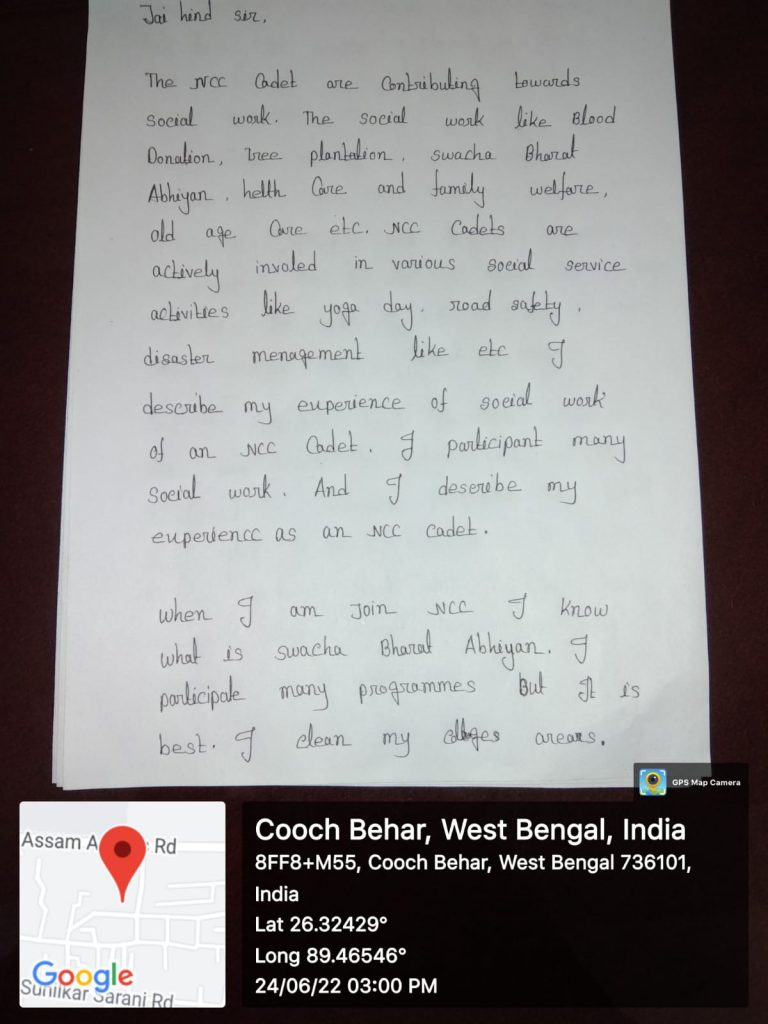 Jai hind sir,
The NCC Cadet are Contributing towards
Social work. The social work like Blood
Donation, tree plantation, swacha Bharat
Abhiyan, helth Care and family welfare,
old age Care etc. NCC Cadets are
actively involed in various social service
activities like yoga day, road safety,
disaster menagement like etc I
describe my euperience of social work
of an NCC Cadet. I participant many
Social work. And I deseribe my
euperience as an NCC cadet.
When I am Join NCC I Know
What is swacha Bharat Abhiyan. I
participate many programmes But It is
best. I clean my areas.
GPS Map Camera
Assam Rd
Google
Sunilkar Sarani Rd
Cooch Behar, West Bengal, India
8FF8+M55, Cooch Behar, West Bengal 736101,
India
Lat 26.32429°
Long 89.46546°
24/06/22 03:00 PM